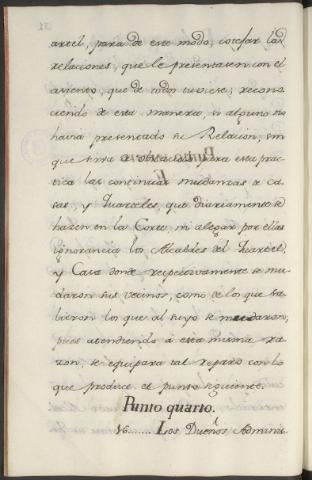 artel, para de este modo, cotejar las
relaciones, que le presentasen con el
asiento, que de todos tuviese; recono
ciendo de esta manera, si alguno no
havia presentado su Relacion, sin
que sirva de obstaculo para esta prac
tica las continuas mudanzas de ca
sas, y Quarteles, que diariamente se
hacen en la Corte, ni alegar por ellas
ignorancia los Alcaldes del Quartel,
y Casa donde respectivamente se mu
daron sus vecinos, como de los que sa
lieron los que al suyo se mudaron,
pues atendiendo a esta misma ra
zon, se equipara tal reparo con lo
que produce el punto siguiente.
Punto quarto.
16....... Los Dueños, Adminis